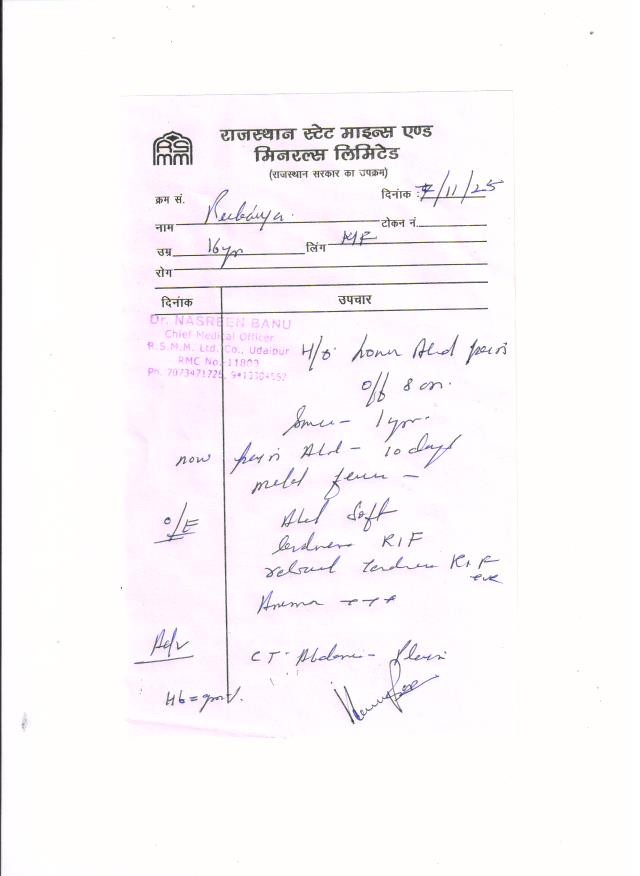 RSMM
राजस्थान स्टेट माइन्स एण्ड
मिनरल्स लिमिटेड
(राजस्थान सरकार का उपक्रम)
क्रम सं. दिनांक : 7/11/25
नाम टोकन नं.
उम्र 16 yr लिंग
रोग
दिनांक उपचार
Dr. NASREEN BANU
Chief Medical Officer
R.S.M.M. Ltd. Co., Udaipur
RMC No.-11803
H/o Lower Abd pain
off & on.
Since - 1 yr.
now pain Abd - 10 days
fever -
O/E Abd Soft
tenderness RIF
rebound tenderness RIF
+ve
Anemia +++
Adv
CT - Abdomen - Plain
Hb = gm%